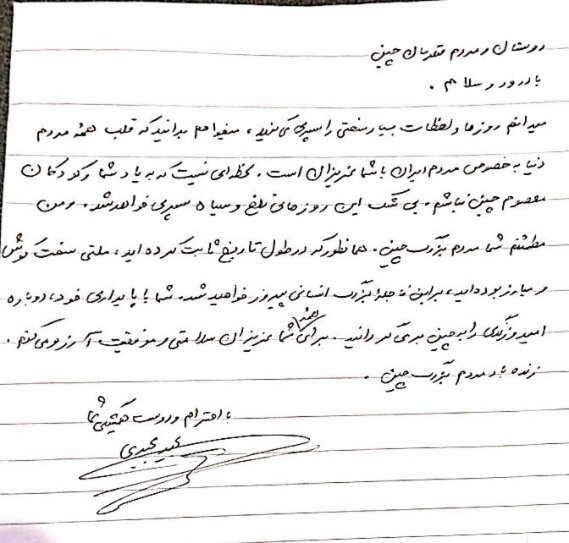 دوستان و مردم قهرمان چین
با درود و سلام .
میدانم روزها و لحظات بسیار سختی را سپری می کنید ، میخواهم بدانید که قلب همهٔ مردم
دنیا به خصوص مردم ایران با شما عزیزان است . لحظه ای نیست که به یاد شما و کودکان
معصوم چین نباشم . بی شک این روزهای تلخ و سیاه سپری خواهد شد . و من
مطمئنم شما مردم بزرگ چین . همانطور که در طول تاریخ ثابت کرده اید ، ملتی سخت کوش
و مبارز بوده اید ، بر این فاجعهٔ بزرگ انسانی پیروز خواهید شد . شما با پایداری خود ، دوباره
امید و زندگی را به چین برمی گردانید . برای همهٔ شما عزیزان سلامتی و موفقیت آرزو می کنم .
زنده باد مردم بزرگ چین .
با احترام و دوست همیشگی شما
مجید مجیدی